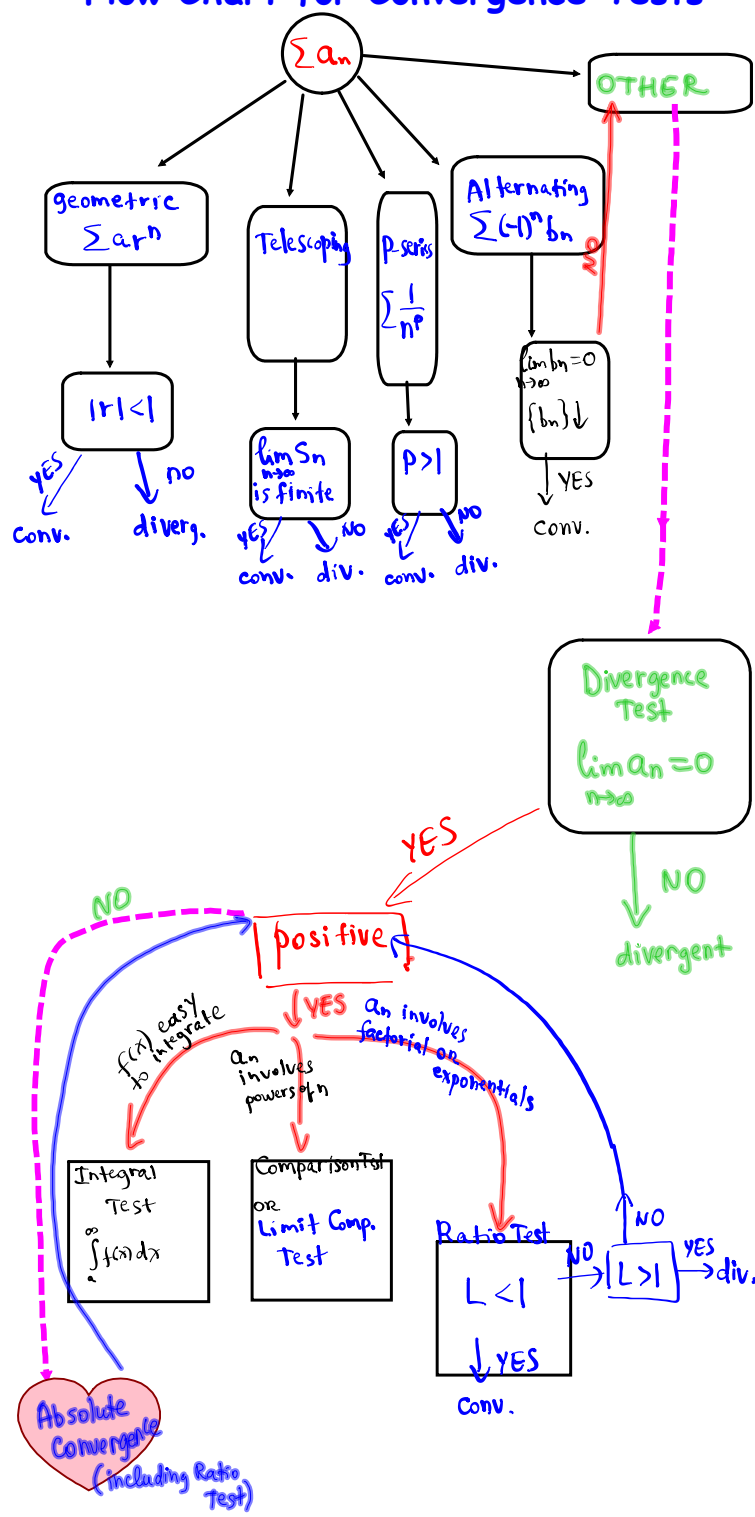 Flow Chart for Convergence Tests
∑ an
OTHER
geometric
∑ arⁿ
Telescoping
p-series
∑ 1/nᵖ
Alternating
∑(-1)ⁿ bn
NO
|r|<1
YES
NO
conv.
diverg.
lim Sn
n→∞
is finite
YES
NO
conv.
div.
P>1
YES
NO
conv.
div.
lim bn=0
n→∞
{bn}↓
YES
conv.
Divergence
Test
lim an=0
n→∞
YES
NO
divergent
NO
positive
YES
f(x) easy
to integrate
an
involves
powers of n
an involves
factorial or
exponentials
Integral
Test
∞
∫f(x)dx
Comparison Tst
OR
Limit Comp.
Test
Ratio Test
L<1
YES
conv.
NO
L>1
NO
YES
div.
Absolute
Convergence
(including Ratio
Test)